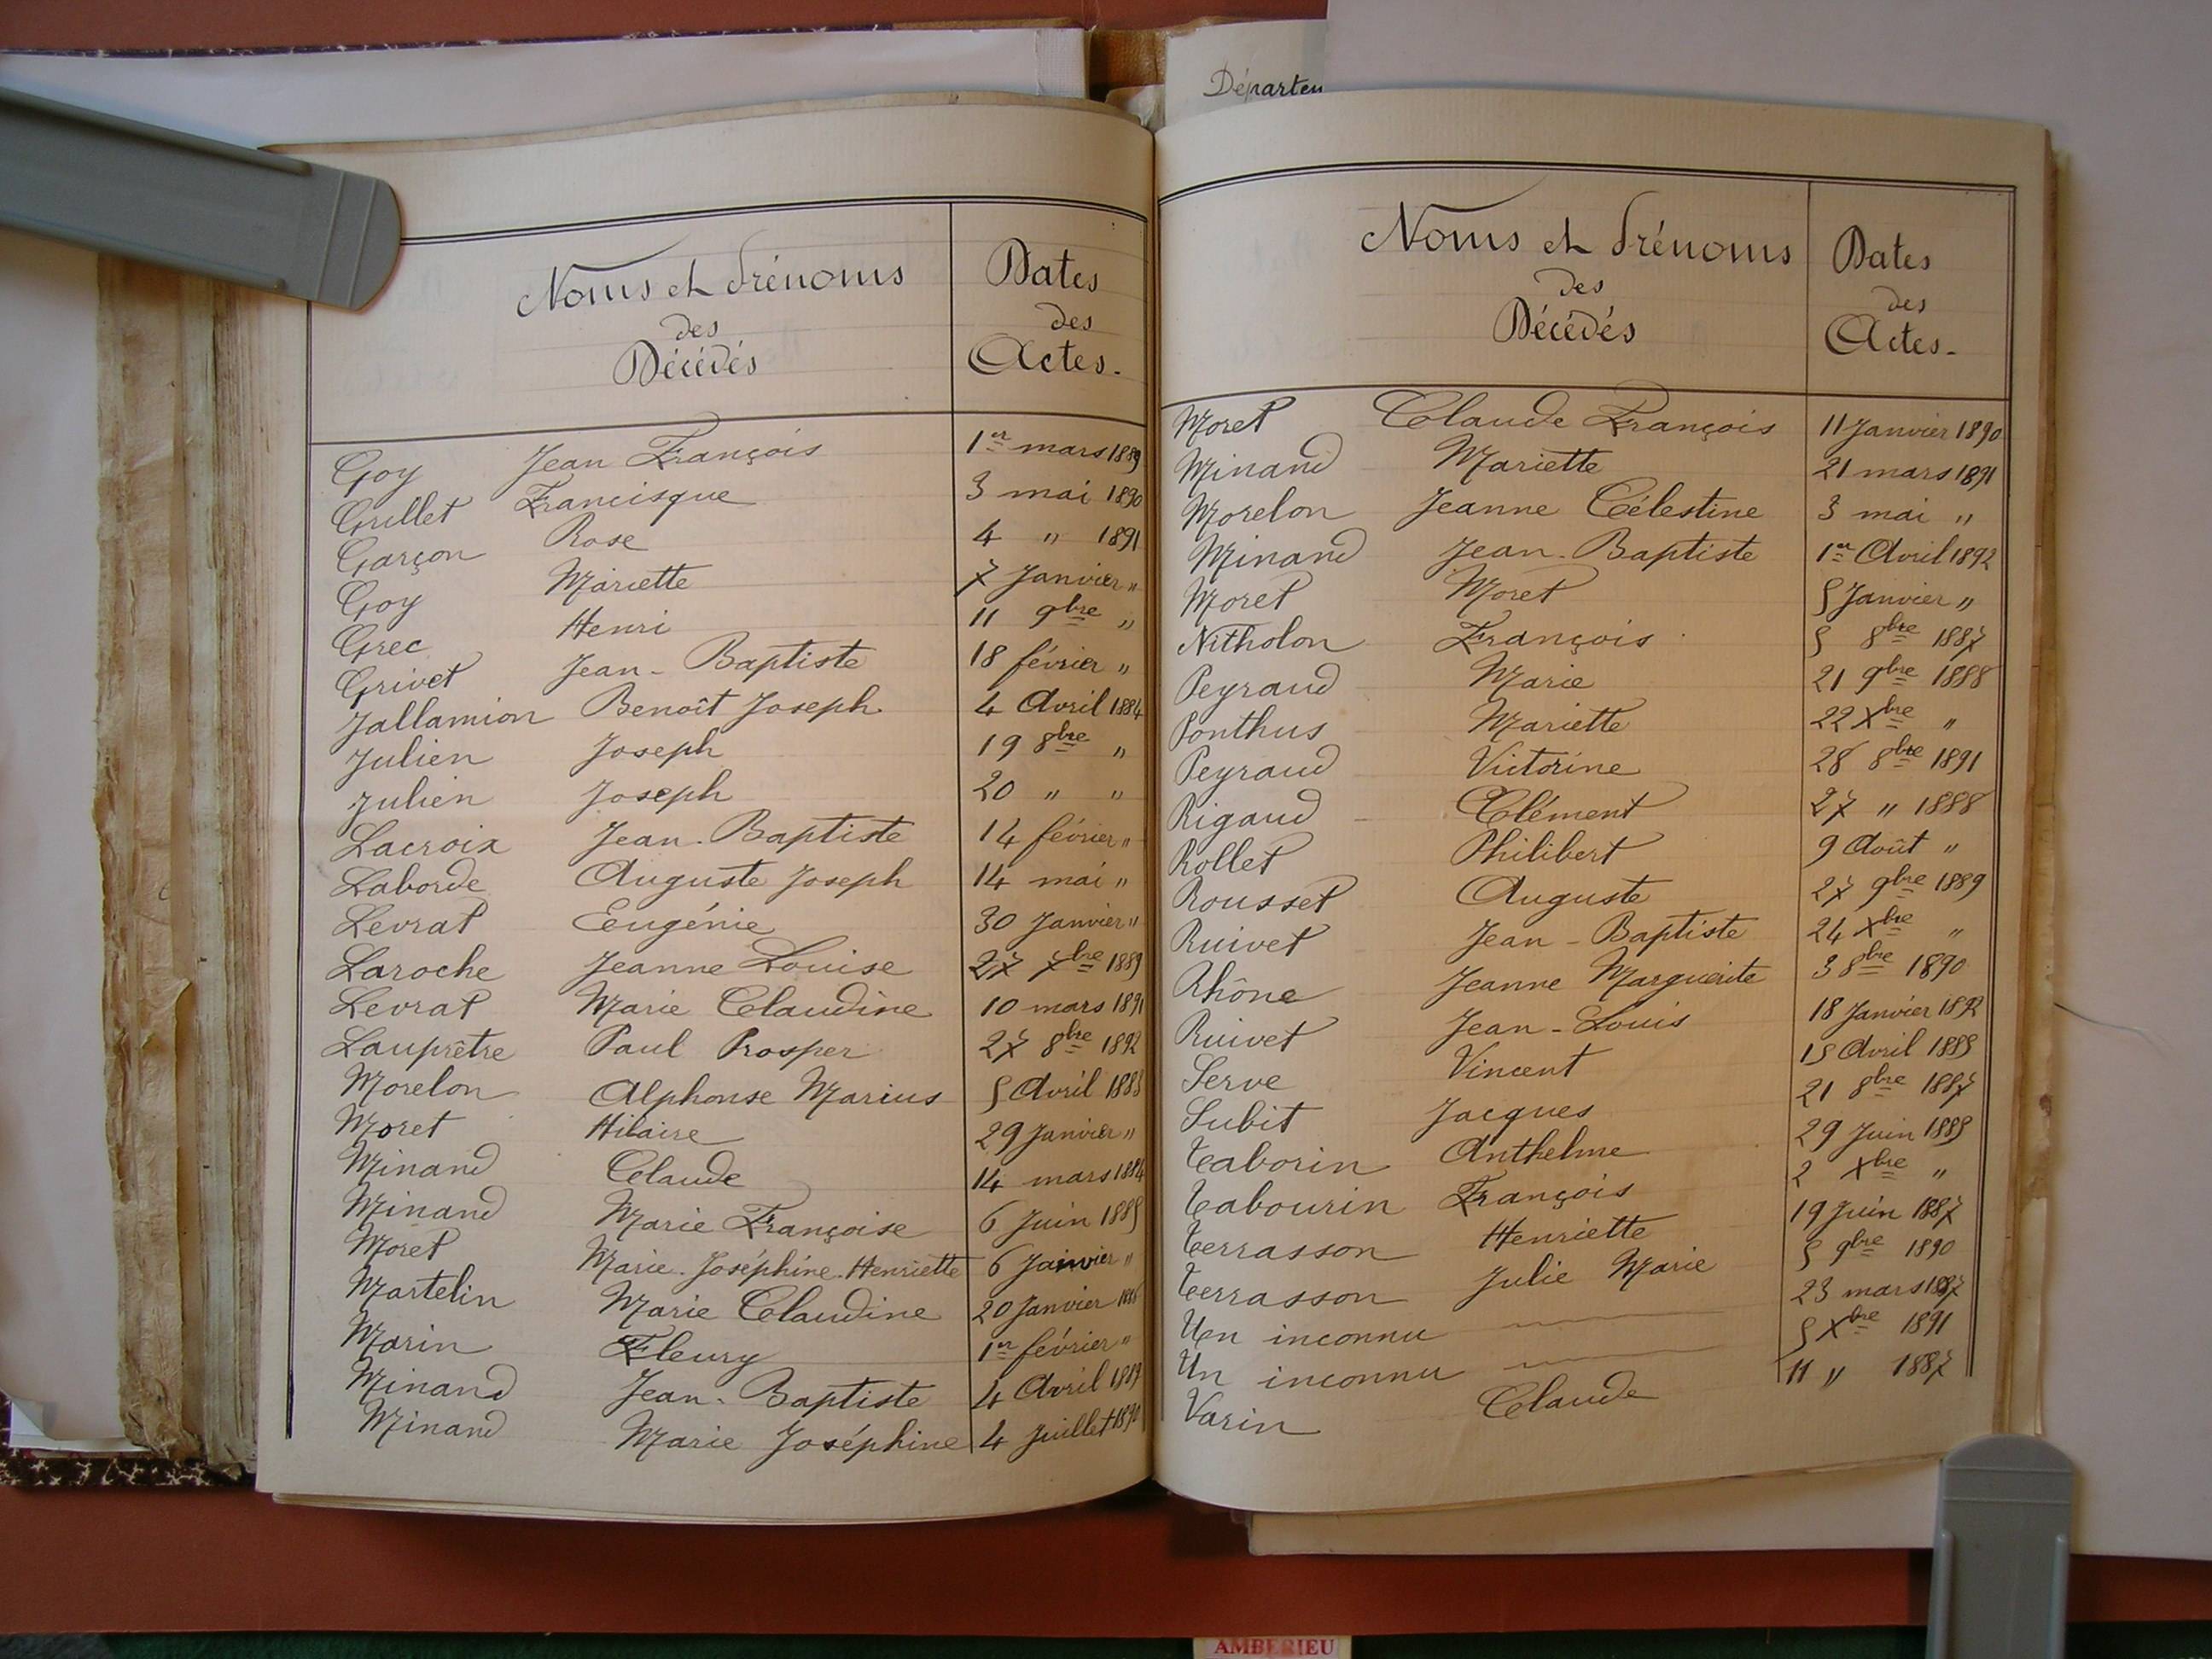 Départem
Noms et Prénoms
des
Décédés
Dates
des
Actes.
Goy Jean François 1er mars 1889
Grillet Francisque 3 mai 1890
Garçon Rose 4 " 1891
Goy Mariette 7 Janvier "
Grec Henri 11 9bre "
Grivet Jean-Baptiste 18 février "
Jallamion Benoît Joseph 4 Avril 1884
Julien Joseph 19 8bre "
Julien Joseph 20 " "
Lacroix Jean-Baptiste 14 février "
Laborde Auguste Joseph 14 mai "
Levrat Eugénie 30 Janvier "
Laroche Jeanne Louise 27 7bre 1889
Levrat Marie Claudine 10 mars 1891
Lauprêtre Paul Prosper 27 8bre 1892
Morelon Alphonse Marius 5 Avril 1883
Moret Hilaire 29 Janvier "
Minand Claude 14 mars 1884
Minand Marie Françoise 6 Juin 1885
Moret Marie-Joséphine-Henriette 6 Janvier "
Martelin Marie Claudine 20 Janvier 1886
Marin Fleury 1er février "
Minand Jean-Baptiste 4 Avril 1889
Minand Marie Joséphine 4 Juillet 1890
Noms et Prénoms
des
Décédés
Dates
des
Actes.
Moret Claude François 11 Janvier 1890
Minand Mariette 21 mars 1891
Morelon Jeanne Célestine 3 mai "
Minand Jean-Baptiste 1er Avril 1892
Moret Moret 5 Janvier "
Nitholon François 5 8bre 1887
Peyraud Marie 21 9bre 1888
Ponthus Mariette 22 Xbre "
Peyraud Victorine 28 8bre 1891
Rigaud Clément 27 " 1888
Rollet Philibert 9 Août "
Rousset Auguste 27 9bre 1889
Ruivet Jean-Baptiste 24 Xbre "
Rhône Jeanne Marguerite 3 8bre 1890
Ruivet Jean-Louis 18 Janvier 1892
Serve Vincent 15 Avril 1885
Subit Jacques 21 8bre 1887
Taborin Anthelme 29 Juin 1885
Tabourin François 2 Xbre "
Terrasson Henriette 19 Juin 1887
Terrasson Julie Marie 5 9bre 1890
Un inconnu 23 mars 1887
Un inconnu 5 Xbre 1891
Varin Claude 11 " 1887
AMBERIEU